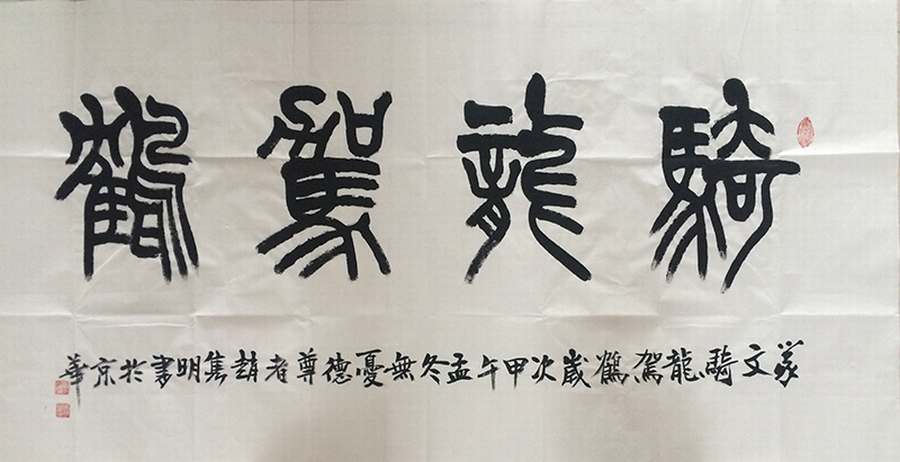 騎龍駕鶴
篆文騎龍駕鶴歲次甲午孟冬無憂德尊者趙隽明書於京華